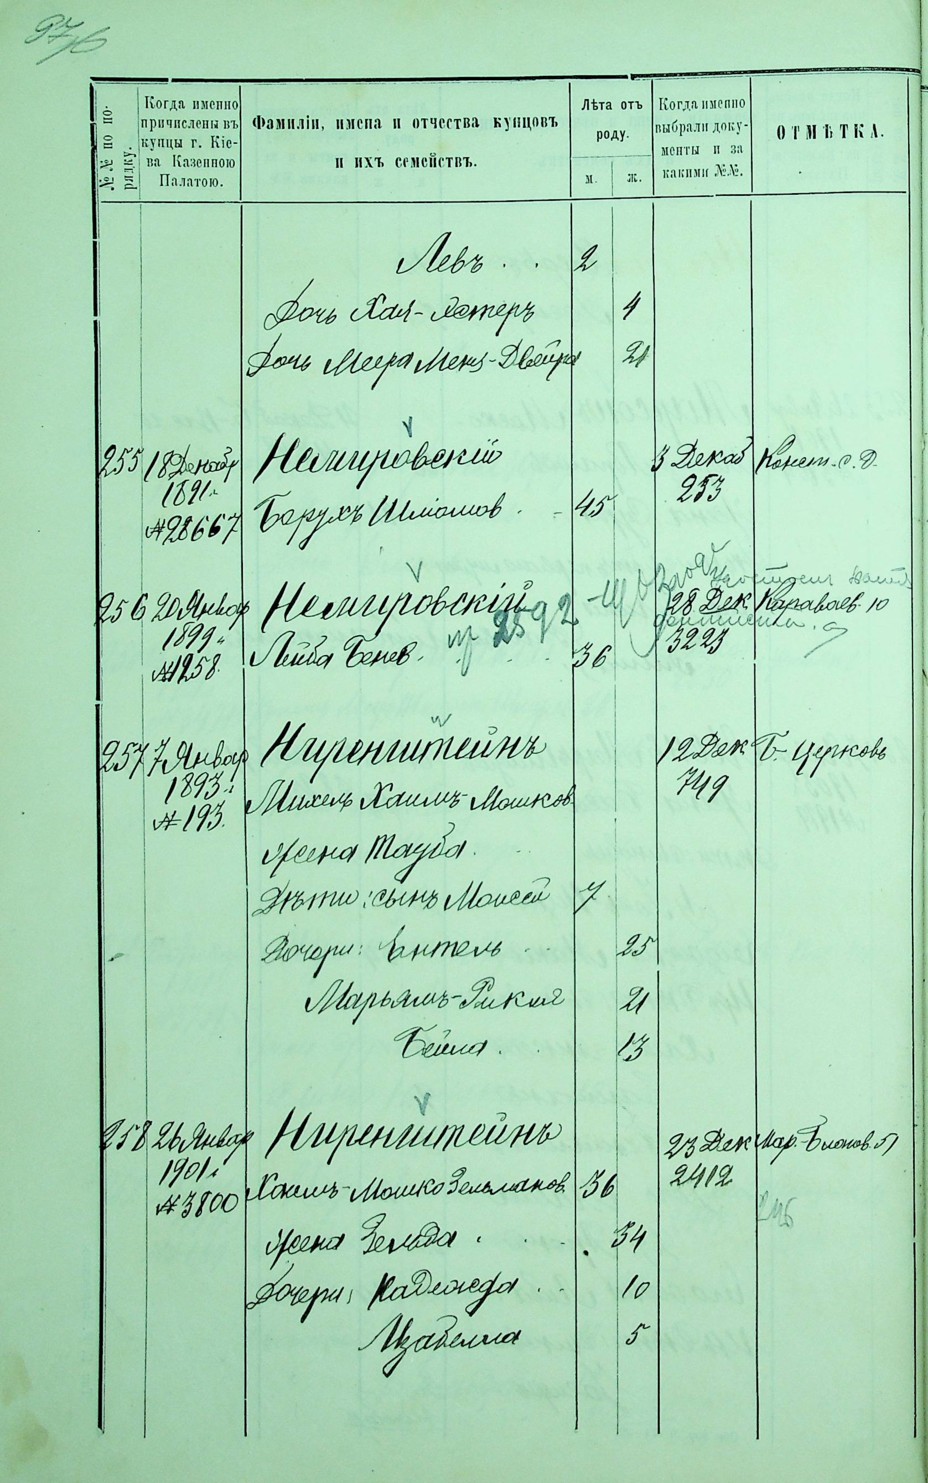 №№ по по-
рядку.
Когда именно
причислены въ
купцы г. Кіе-
ва Казенною
Палатою.
Фамиліи, имена и отчества купцовъ
и ихъ семействъ.
Лѣта отъ
роду.
м. ж.
Когда именно
выбрали доку-
менты и за
какими №№.
ОТМѢТКА.
Левъ 2
Дочь Хая-Эстеръ 4
Дочь Меера Менд-Двейра 21
255 18 Декабр Немировскій 3 Декаб Конст. с. д.
1891 г. 253
№28667 Борухъ Шліомов. 45
256 20 Январ Немировскій 28 Дек Караваев. 10
1899 г. 3223
№1258 Лейба Бенев. 36
2592
257 7 Январ Ниренштейнъ 12 Дек Б. Церковь
1893 г. 749
№193. Михель Хаимъ-Мошков.
Жена Тауба
Дѣти: сынъ Моисей 7
Дочери: Ентель 25
Марьямъ-Рикля 21
Бейла 13
258 26 Январ Ниренштейнъ 23 Дек Мар. Благов. 51
1901 г. 2412
№3800 Хаимъ-Мошко Зельманов. 36
Жена Зельда 34
Дочери: Надежда 10
Изабелла 5